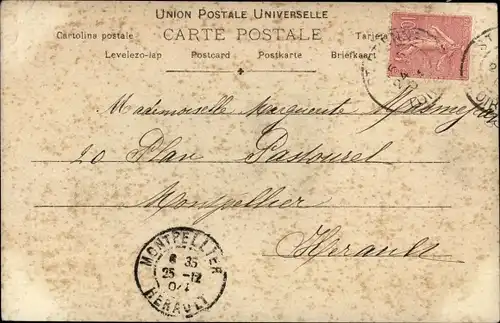 UNION POSTALE UNIVERSELLE
Cartolina postale CARTE POSTALE Tarjeta
Levelezo-lap Postcard Postkarte Briefkaart
Mademoiselle Marguerite
20 Plan Pastourel
Montpellier
Hérault
MONTPELLIER
6 35
25 -12
04
HERAULT